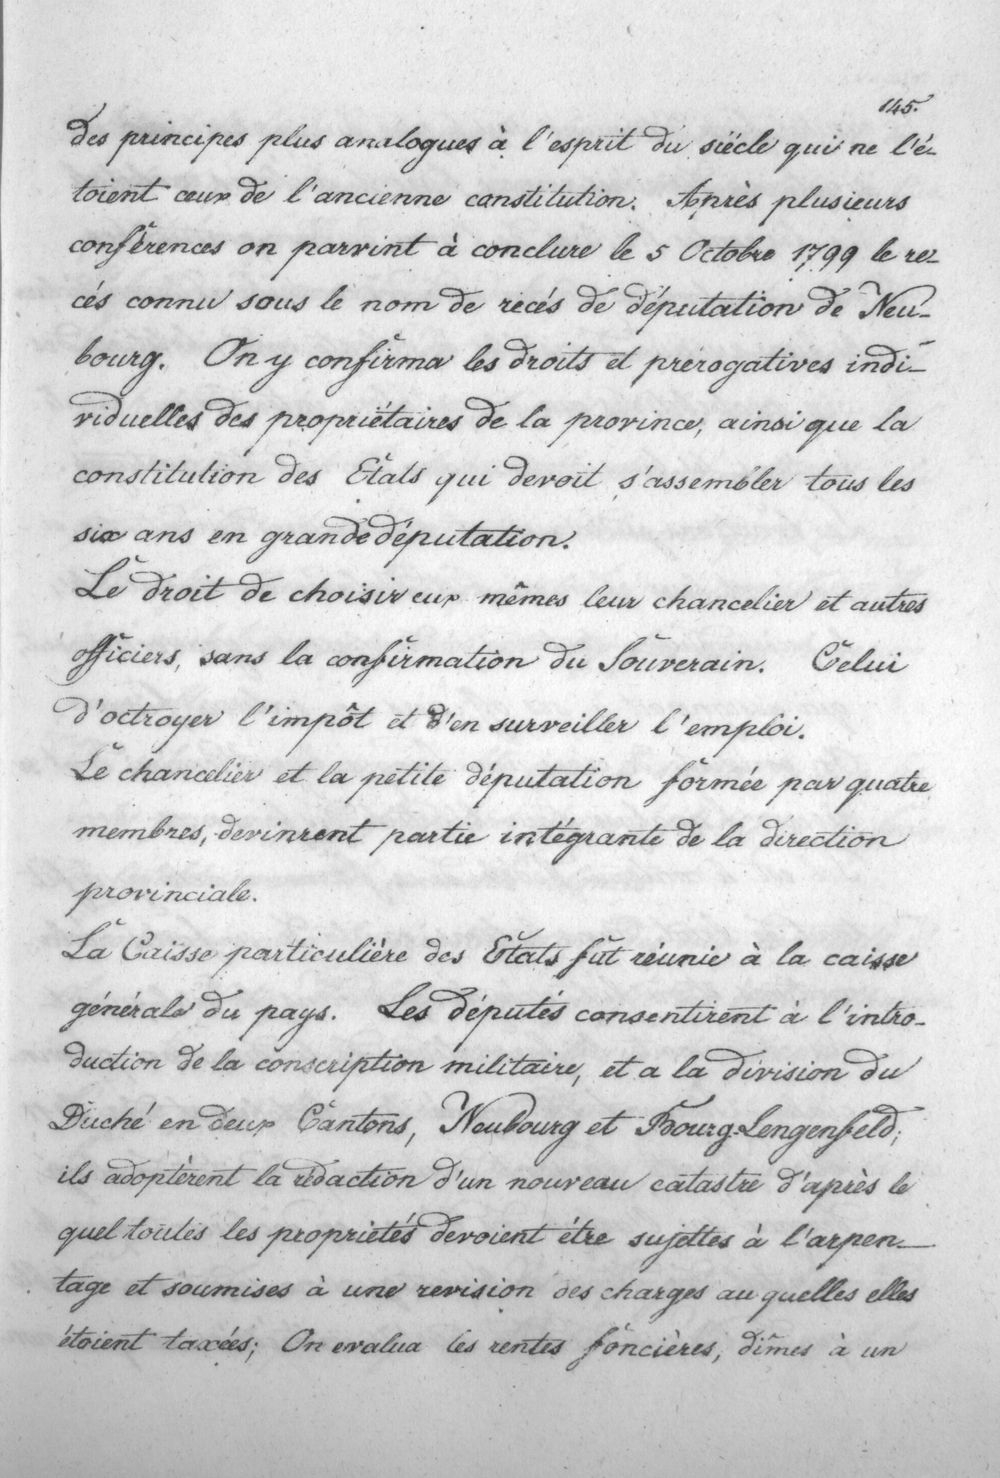 145.
des principes plus analogues à l'esprit du siècle qui ne l'é-
toient ceux de l'ancienne constitution. Après plusieurs
conférences on parvint à conclure le 5 Octobre 1799 le re-
cés connu sous le nom de recés de députation de Neu-
bourg. On y confirma les droits et prerogatives indi-
viduelles des propriétaires de la province, ainsi que la
constitution des Etats qui devoit s'assembler tous les
six ans en grande députation.
Le droit de choisir eux mêmes leur chancelier et autres
officiers, sans la confirmation du Souverain. Celui
d'octroyer l'impôt et d'en surveiller l'emploi.
Le chancelier et la petite députation formée par quatre
membres, devinrent partie intégrante de la direction
provinciale.
La Caisse particulière des Etats fut réunie à la caisse
générale du pays. Les députés consentirent à l'intro-
duction de la conscription militaire, et a la division du
Duché en deux Cantons, Neubourg et Bourg-Lengenfeld;
ils adoptèrent la rédaction d'un nouveau catastre d'après le
quel toutes les propriétés devoient être sujettes à l'arpen-
tage et soumises à une revision des charges au quelles elles
étoient taxées; On evalua les rentes foncières, dîmes à un